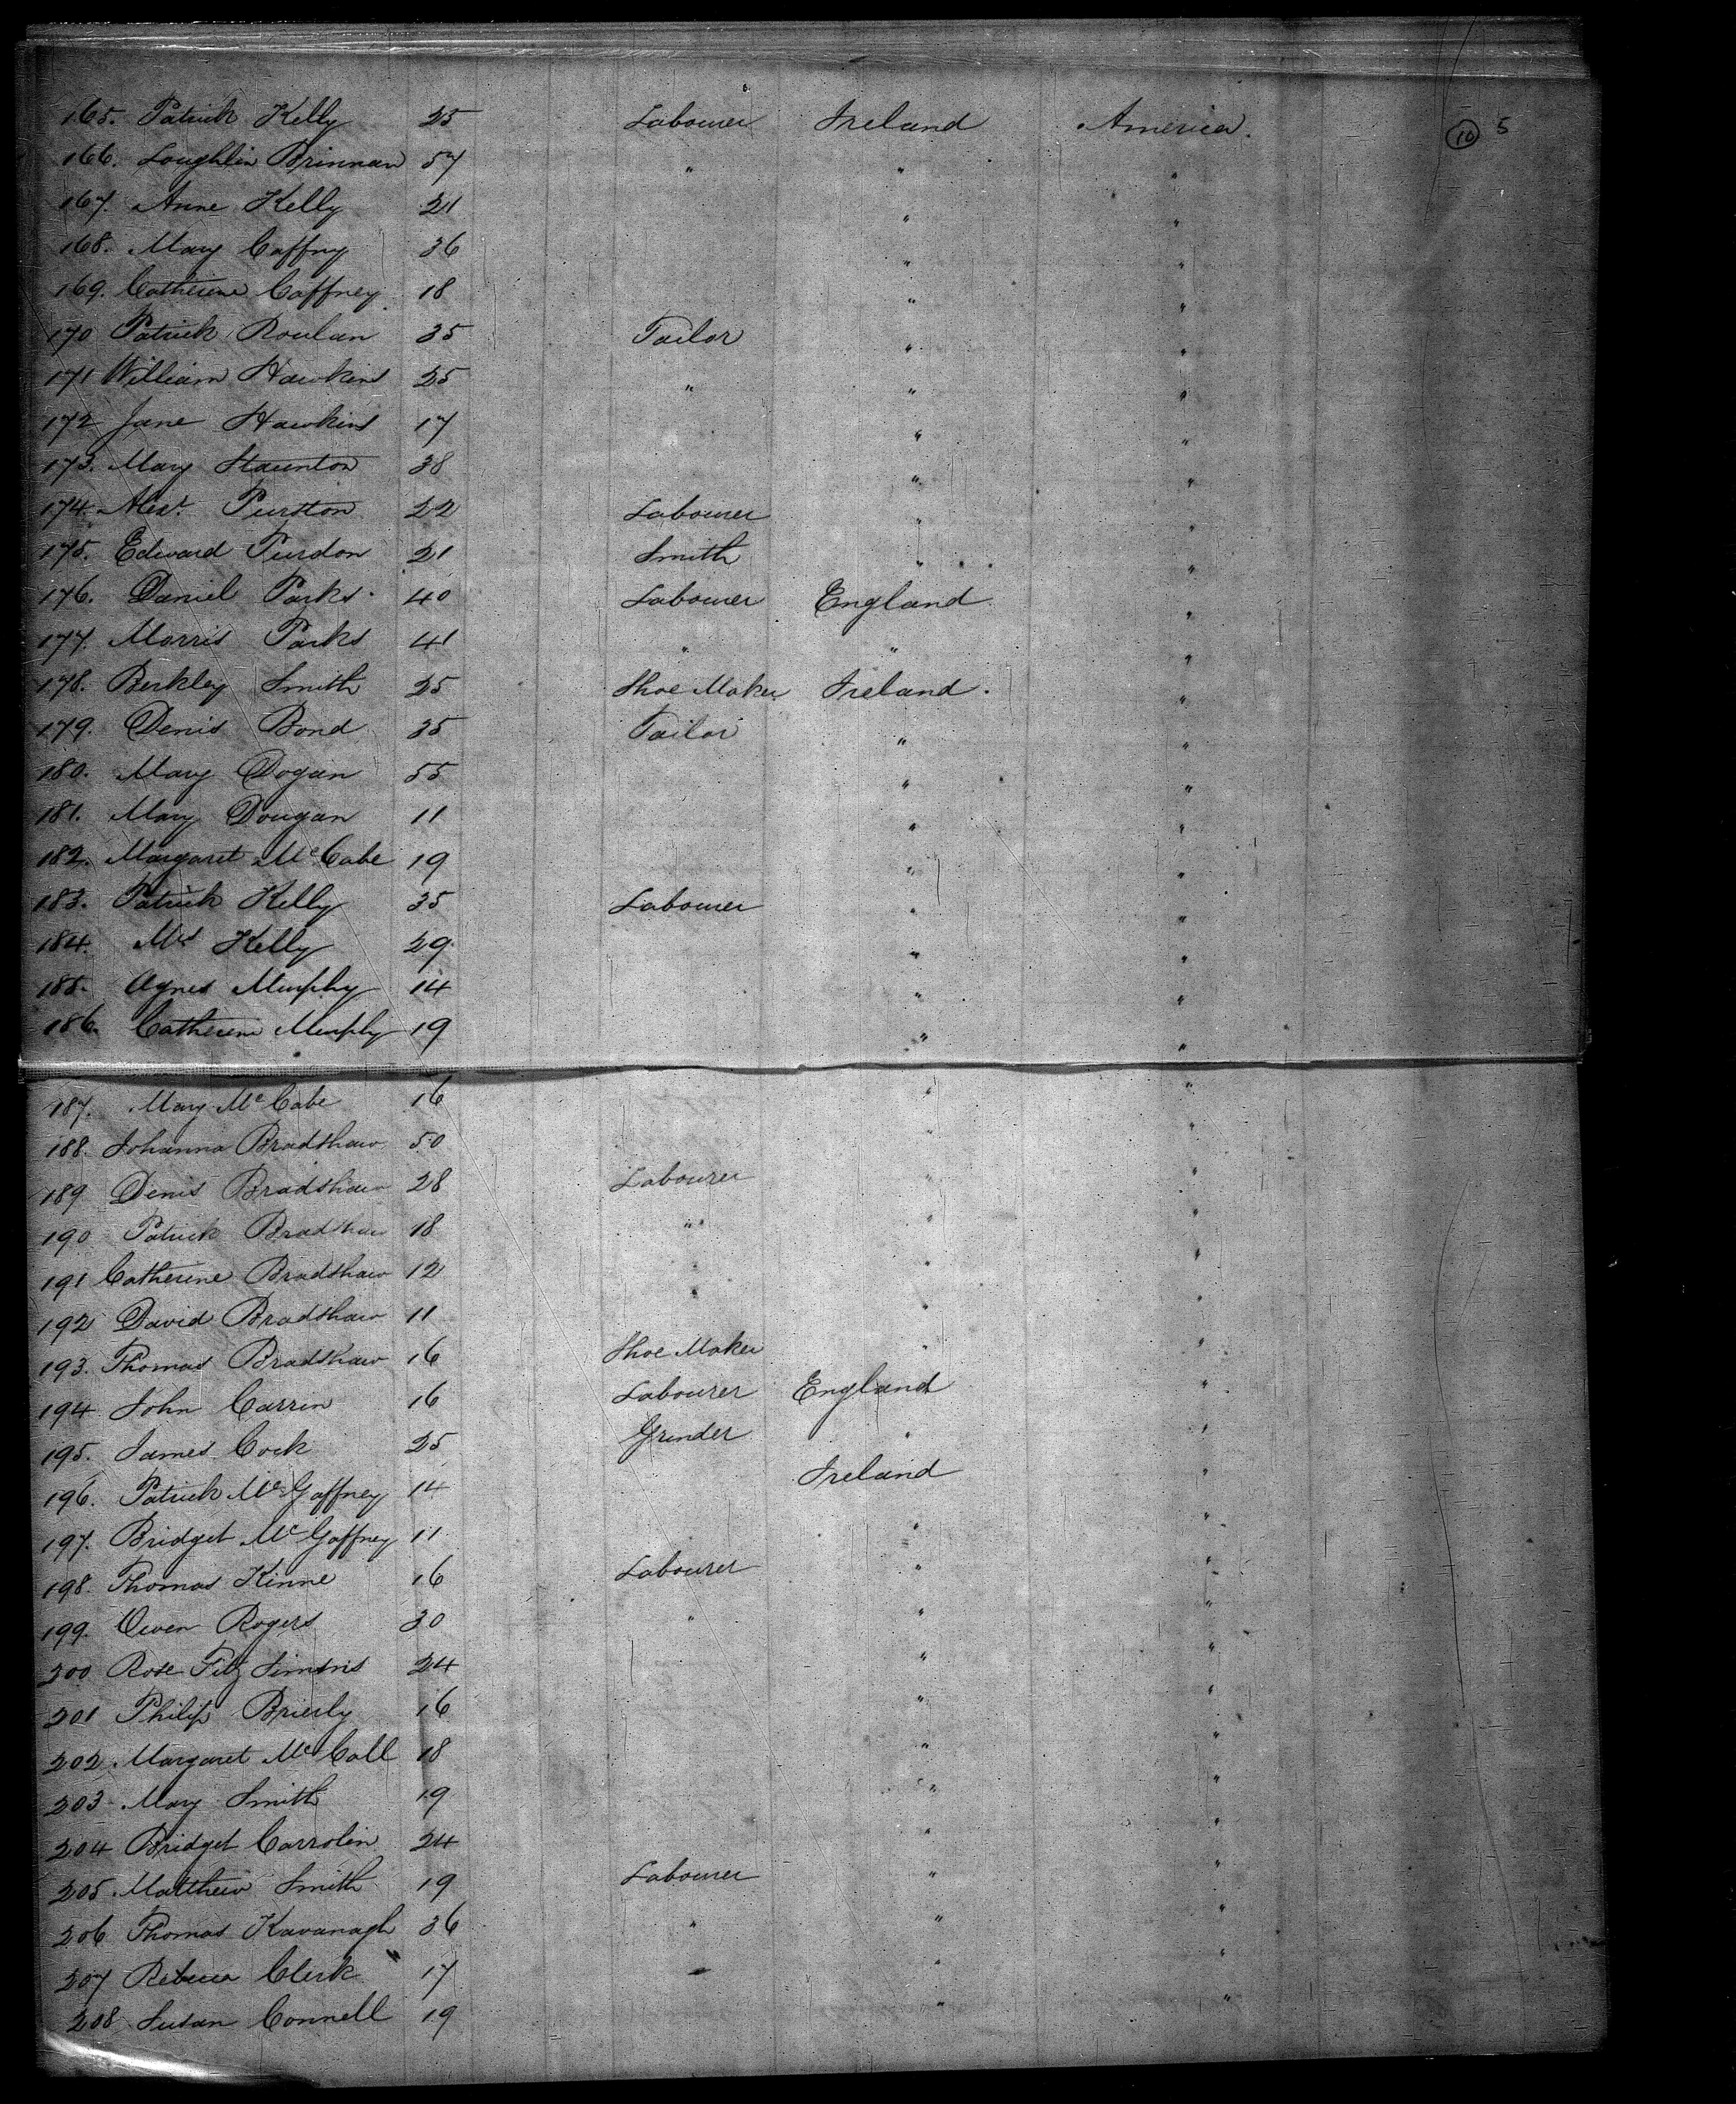 165. Patrick Kelly 25 Labourer Ireland America. 10 5
166. Loughlin Brinnan 57 " " "
167. Anne Kelly 21 " "
168. Mary Caffry 36 " "
169. Catherine Caffney 18 " "
170 Patrick Roulan 35 Tailor " "
171 William Hawkins 25 " " "
172 Jane Hawkins 17 " "
173. Mary Staunton 38 " "
174. Alexr. Purdon 22 Labourer " "
175. Edward Purdon 21 Smith " "
176. Daniel Parks 40 Labourer England "
177. Morris Parks 41 " " "
178. Berkley Smith 25 Shoe Maker Ireland. "
179. Denis Bond 35 Tailor " "
180. Mary Dogan 55 " "
181. Mary Dougan 11 " "
182. Margaret McCabe 19 " "
183. Patrick Kelly 35 Labourer " "
184. Mrs Kelly 29 " "
185. Agnes Murphy 14 " "
186. Catherine Murphy 19 " "
187. Mary McCabe 16 " "
188. Johanna Bradshaw 50 " "
189 Denis Bradshaw 28 Labourer " "
190 Patrick Bradshaw 18 " " "
191 Catherine Bradshaw 12 " " "
192 David Bradshaw 11 " " "
193. Thomas Bradshaw 16 Shoe Maker " "
194 John Carrin 16 Labourer England "
195. James Cock 25 Grinder " "
196. Patrick McGaffney 14 Ireland "
197. Bridget McGaffney 11 " "
198. Thomas Kinne 16 Labourer " "
199. Owen Rogers 30 " " "
200 Rose Fitz Simons 24 " "
201 Philip Brierly 16 " "
202. Margaret McCall 18 " "
203 Mary Smith 19 " "
204 Bridget Carrolin 24 " "
205. Matthew Smith 19 Labourer " "
206 Thomas Kavanagh 36 " " "
207 Rebecca Clerk 17 " "
208 Susan Connell 19 " "